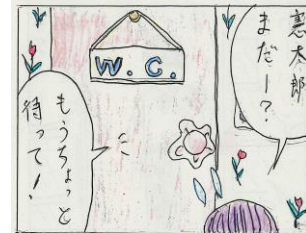 憲太郎
まだー？
W.C.
もうちょっと
待って！